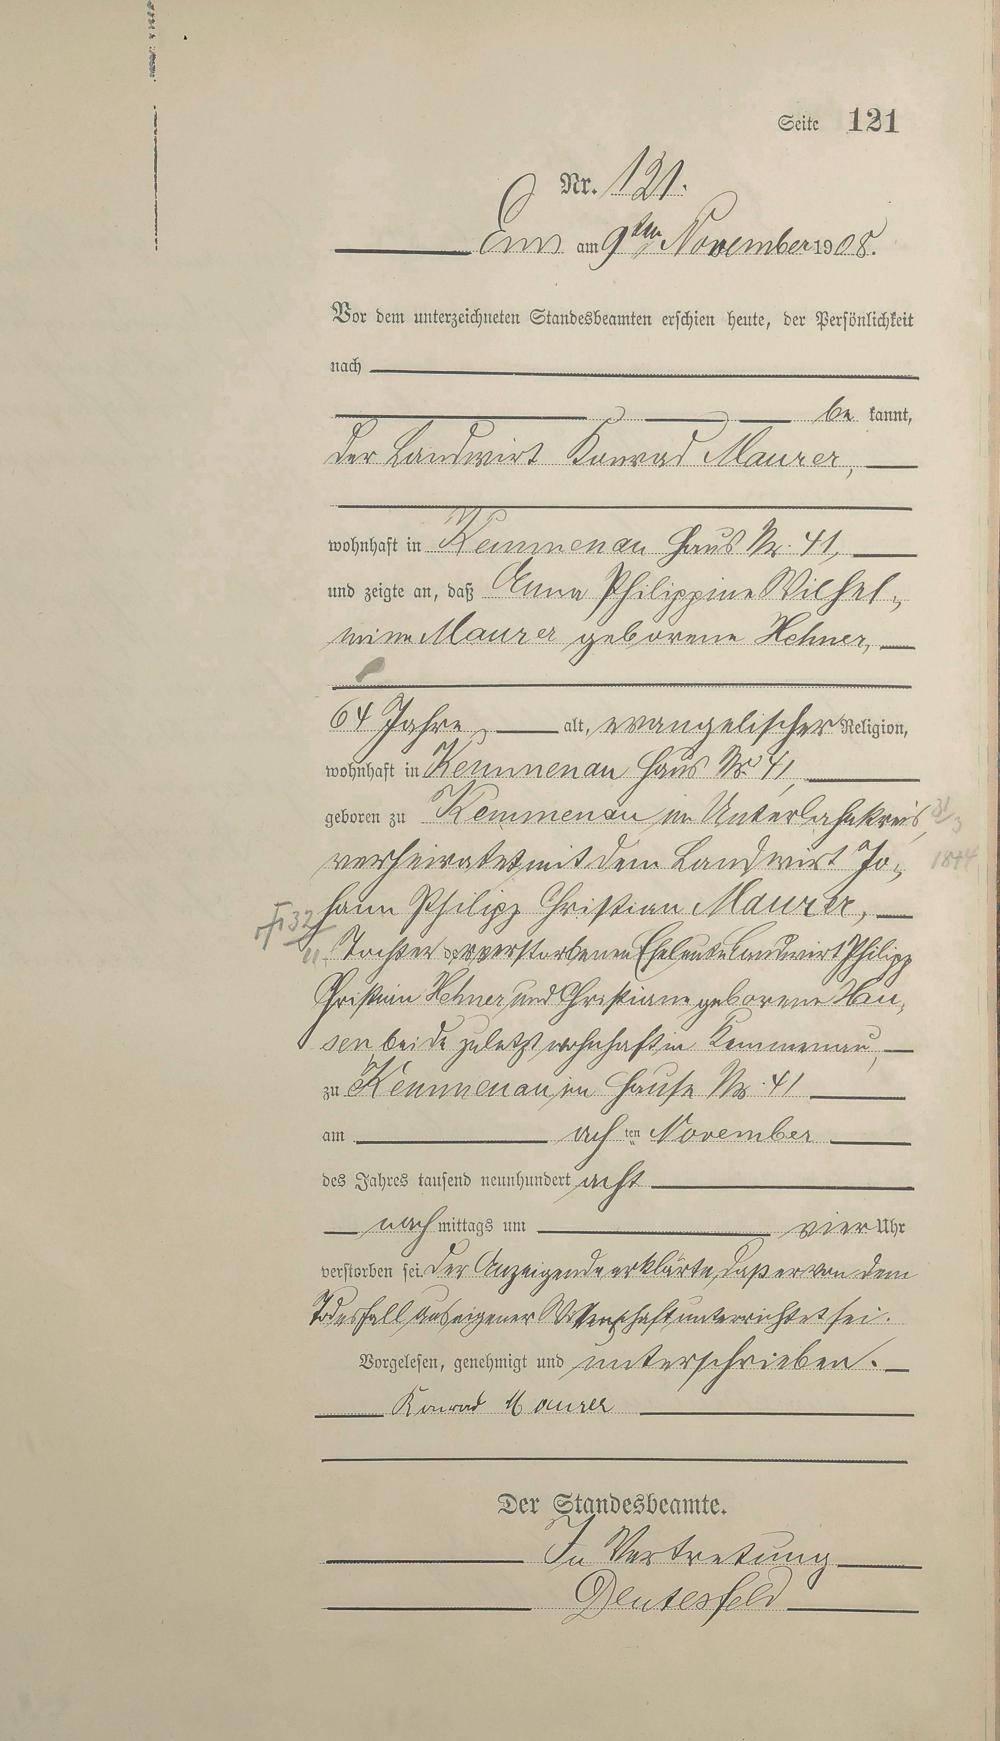 Seite 121
Nr. 121.
Ems am 9ten November 1908.
Vor dem unterzeichneten Standesbeamten erschien heute, der Persönlichkeit
nach
be kannt,
der Landwirt Konrad Maurer,
wohnhaft in Kemmenau Haus Nr. 41,
und zeigte an, daß Anna Philippine Wilhel-
mine Maurer geborene Hehner,
64 Jahre, alt, evangelischer Religion,
wohnhaft in Kemmenau Haus Nr. 41,
geboren zu Kemmenau im Unterlahnkreis, 31/3
verheiratet mit dem Landwirt Jo- 1844
hann Philipp Christian Maurer,
Tochter der verstorbenen Eheleute Landwirt Philipp
Christian Hehner und Christiane geborene
beide zuletzt wohnhaft in Kemmenau,
zu Kemmenau im Hause Nr. 41
am achten November
des Jahres tausend neunhundert acht
nach mittags um vier Uhr
verstorben sei. Der Anzeigende erklärte, daß er von dem
Todesfall aus eigener Wissenschaft unterrichtet sei.
Vorgelesen, genehmigt und unterschrieben.
Konrad Maurer
Der Standesbeamte.
In Vertretung